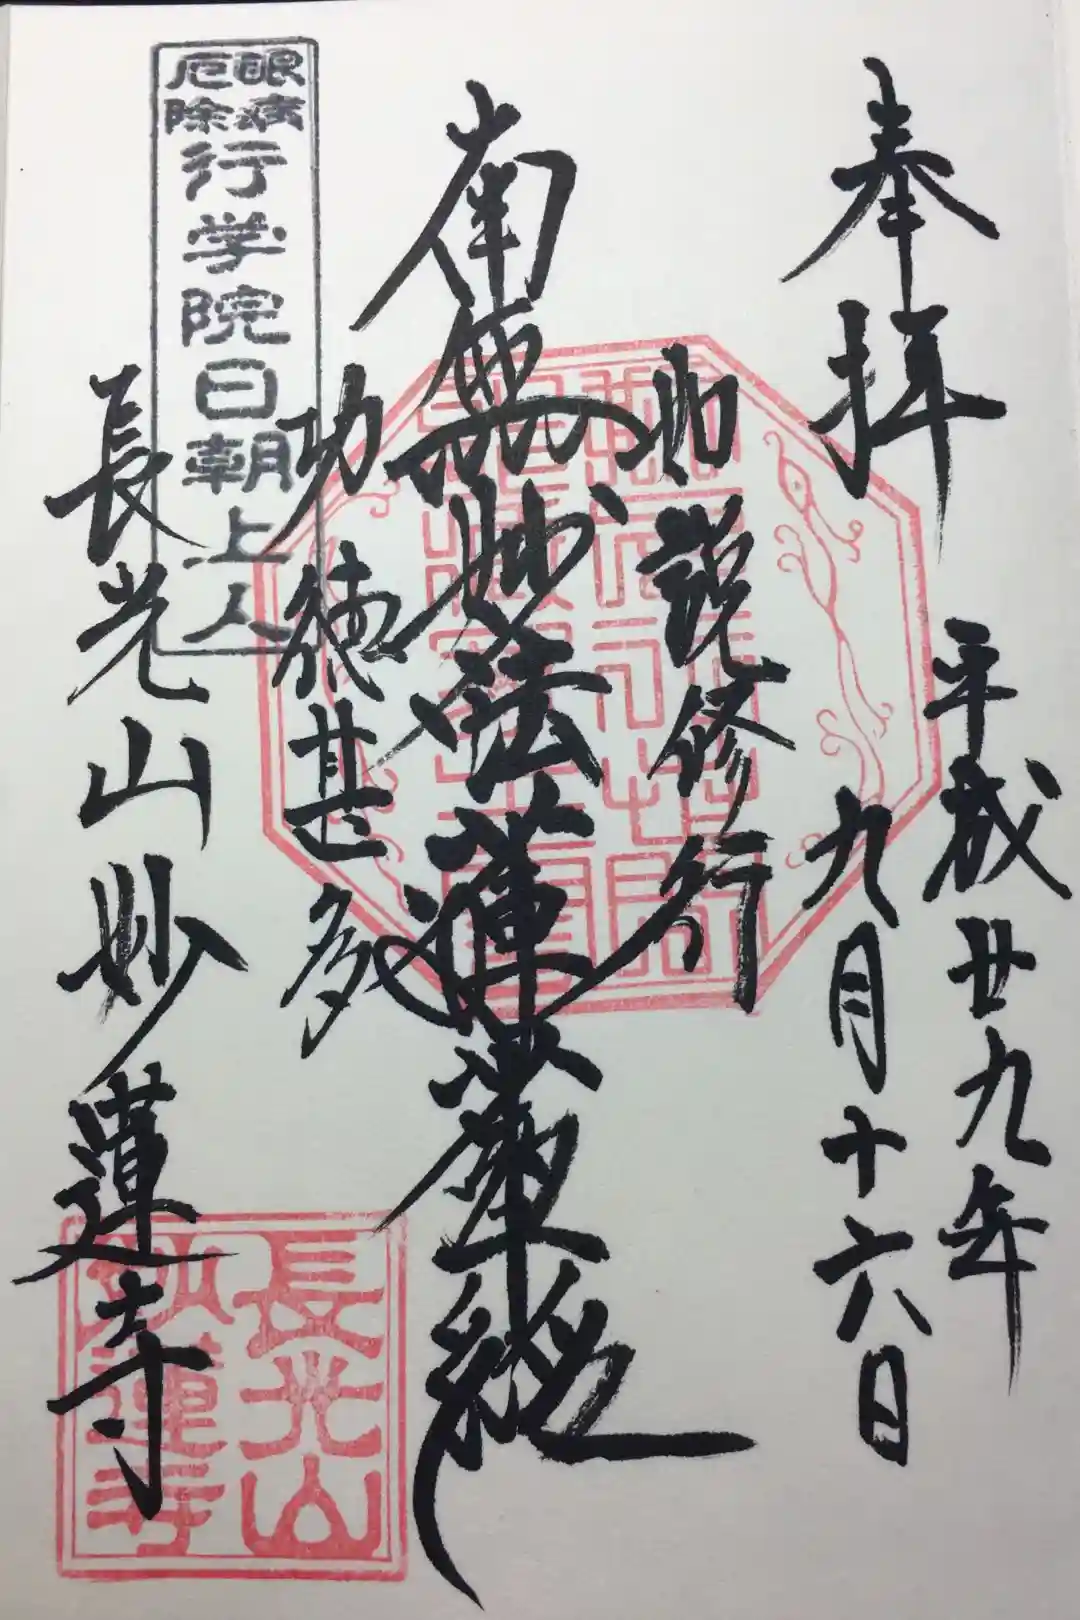 奉拝
平成廿九年
九月十六日
如説修行
南無妙法蓮華経
功徳甚多
眼病
厄除
行学院日朝上人
長光山妙蓮寺
長光山
妙蓮寺